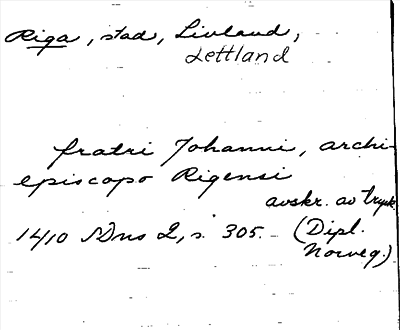 Riga, stad, Livland,
Lettland
fratri Johanni, archi-
episcopo Rigensi
avskr. av tryck
1410 Dns 2, s. 305. (Dipl.
Norveg.)